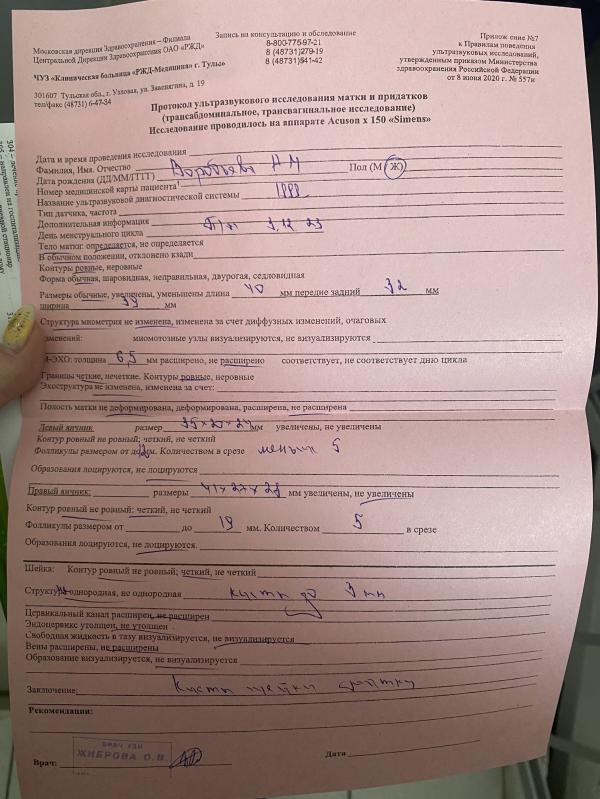 Московская дирекция Здравоохранения – Филиала
Центральной Дирекции Здравоохранения ОАО «РЖД»
ЧУЗ «Клиническая больница «РЖД-Медицина» г. Тулы»
301607 Тульская обл., г. Узловая, ул. Завенягина, д. 19
тел/факс (48731) 6-47-34
Запись на консультацию и обследование
8-800-775-97-21
8 (48731)279-19
8 (48731)541-42
Приложение №7
к Правилам поведения
ультразвуковых исследований,
утвержденным приказом Министерства
здравоохранения Российской Федерации
от 8 июня 2020 г. № 557н
Протокол ультразвукового исследования матки и придатков
(трансабдоминальное, трансвагинальное исследование)
Исследование проводилось на аппарате Acuson x 150 «Simens»
Дата и время проведения исследования
Фамилия, Имя. Отчество Воробьева А М Пол (М Ж)
Дата рождения (ДД/ММ/ГГГГ)
Номер медицинской карты пациента
Название ультразвуковой диагностической системы
Тип датчика, частота
Дополнительная информация П/м 3,12 23
День менструального цикла
Тело матки: определяется, не определяется
В обычном положении, отклонено кзади
Контуры ровные, неровные
Форма обычная, шаровидная, неправильная, двурогая, седловидная
Размеры обычные, увеличены, уменьшены длина 40 мм передне задний 32 мм
ширина 39 мм
Структура миометрия не изменена, изменена за счет диффузных изменений, очаговых
зменений: миомотозные узлы визуализируются, не визуализируются
М-ЭХО: толщина 6,5 мм расширено, не расширено соответствует, не соответствует дню цикла
Границы четкие, нечеткие. Контуры ровные, неровные
Эхоструктура не изменена, изменена за счет:
Полость матки не деформирована, деформирована, расширена, не расширена
Левый яичник размер мм увеличены, не увеличены
Контур ровный не ровный; четкий, не четкий
Фолликулы размером от до мм. Количеством в срезе меньше 5
Образования лоцируются, не лоцируются
Правый яичник: размеры 41х27х28 мм увеличены, не увеличены
Контур ровный не ровный; четкий, не четкий
Фолликулы размером от до 19 мм. Количеством 5 в срезе
Образования лоцируются, не лоцируются.
Шейка: Контур ровный не ровный; четкий, не четкий
Структура однородная, не однородная кисты до 3 мм
Цервикальный канал расширен, не расширен
Эндоцервикс утолщен, не утолщен
Свободная жидкость в тазу визуализируется, не визуализируется
Вены расширены, не расширены
Образование визуализируется, не визуализируется
Заключение: Кисты шейки матки
Рекомендации:
Врач: ВРАЧ УЗИ
ЖИБРОВА О.В.
Дата